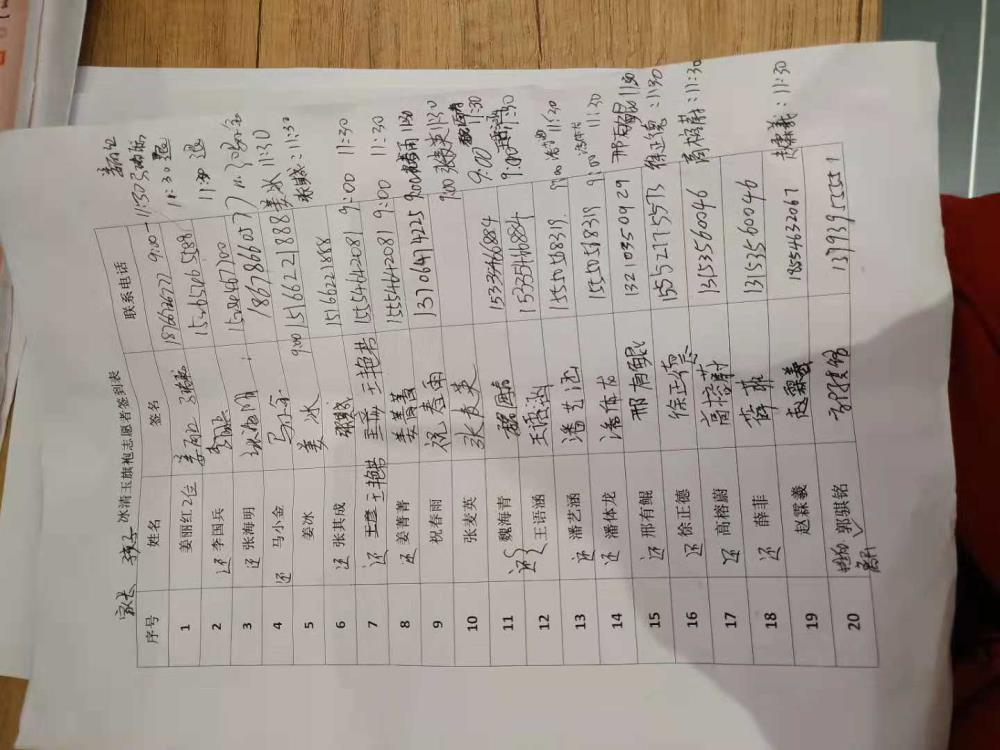 家长 孩子 冰清玉旗袍志愿者签到表
序号 姓名 签名 联系电话
1 姜丽红2位 姜丽红 9:00 11:30
2 还 李国兵 李国兵 11:30 退
3 还 张海明 张海明 11:30 退
4 还 马小金 马小金 18678660577 11:30
5 姜冰 姜冰 9:00 15166221888 姜冰 11:30
6 还 张其成 张其成 15166221888 11:30
7 还 王彦 王艳君 王彦 王艳君 15554642081 9:00 11:30
8 还 姜菁菁 姜菁菁 15554642081 9:00 11:30
9 祝春雨 祝春雨 13706474225 9:00 祝春雨 11:30
10 张麦英 张麦英 9:00 张麦英 11:30
11 还 魏海青 魏海青 15335466884 9:00 11:30
12 王语涵 王语涵 15335466884 9:00 11:30
13 还 潘艺涵 潘艺涵 15550568319 9:00 11:30
14 还 潘体龙 潘体龙 15550568319 9:00 潘体龙 11:30
15 还 邢有鲲 邢有鲲 13210350929 邢有鲲 11:30
16 还 徐正德 徐正德 15521775573 徐正德:11:30
17 还 高榕蔚 高榕蔚 13153560046 高榕蔚:11:30
18 还 薛菲 薛菲 13153560046
19 赵霖羲 赵霖羲 18554632067 赵霖羲:11:30
20 郭骐铭 郭骐铭 离开